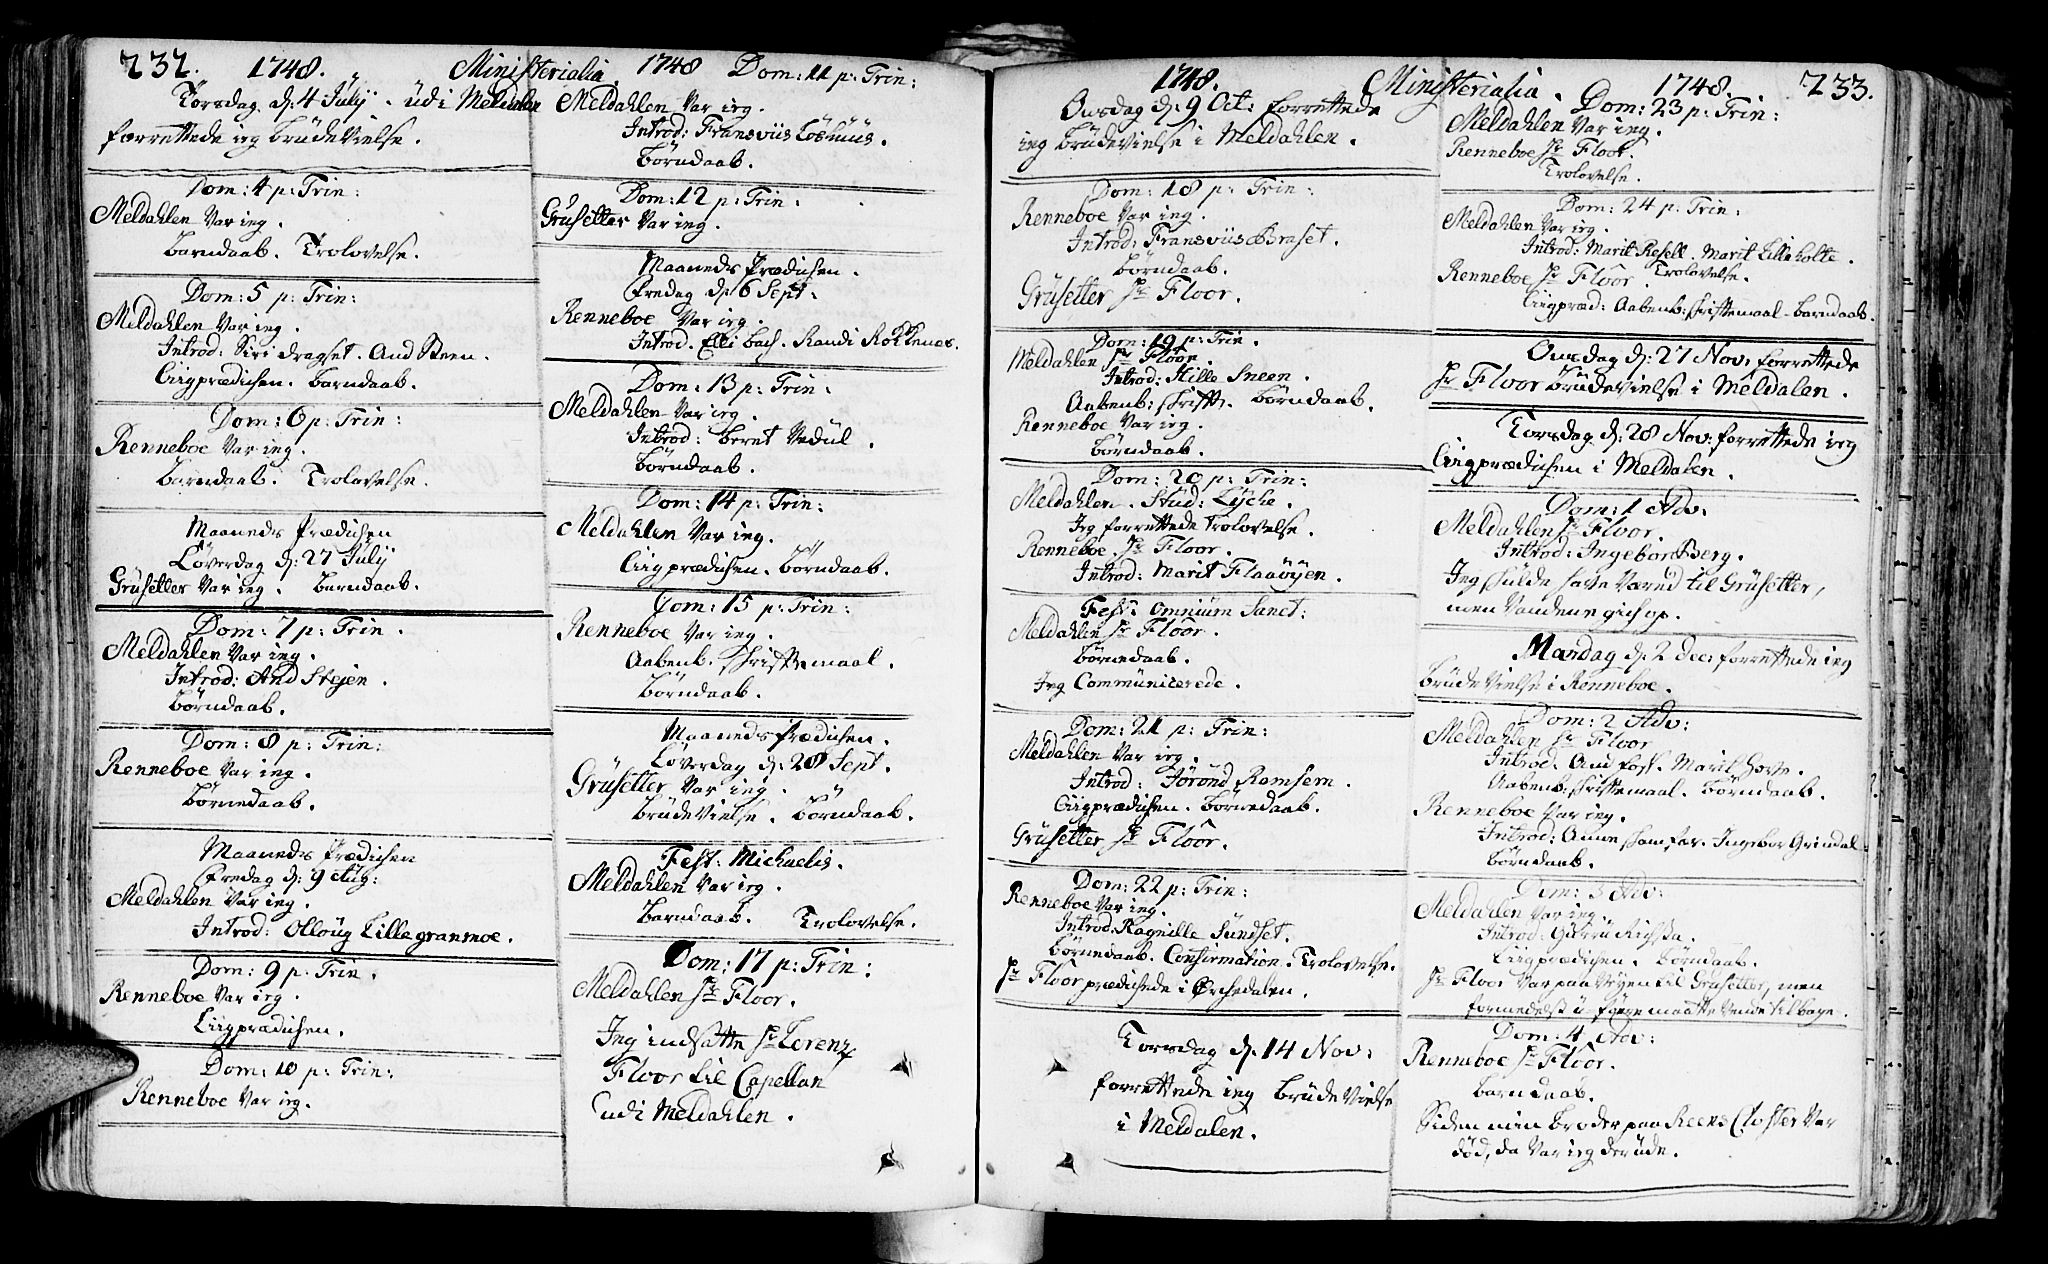 232. 1748. Ministerialia. 1748
Torsdag d: 4 July udi Meldalen
forrettede ieg Brüdevielse.
Dom: 4 p: Trin:
Meldahlen Var ieg.
Barndaab. Trolovelse.
Dom: 5 p: Trin:
Meldahlen Var ieg.
Introd: Siri Dragset. And Steen.
Liigprædichen. Barndaab.
Dom: 6 p: Trin:
Renneboe Var ieg.
Barndaab. Trolovelse.
Maaneds Prædichen
Löverdag d: 27 July
Grüsetter Var ieg. Barndaab.
Dom: 7 p: Trin.
Meldahlen Var ieg.
Introd: And Stejen.
Börndaab.
Dom: 8 p: Trin:
Renneboe Var ieg.
Börnedaab.
Maaneds Prædichen
Fredag d: 9 Aug:
Meldahlen Var ieg.
Introd: Olloug Lillegranmoe.
Dom: 9 p: Trin.
Renneboe Var ieg.
Liigprædichen.
Dom: 10 p: Trin:
Renneboe Var ieg.
Dom: 11 p: Trin:
Meldahlen Var ieg.
Introd: Fransviis
Börndaab.
Dom: 12 p: Trin:
Grüsetter Var ieg.
Maaneds Prædichen.
Fredag d: 6 Sept:
Renneboe Var ieg.
Introd. Elli Bach. Randi Rokkenes.
Dom: 13 p: Trin:
Meldahlen Var ieg.
Introd: Beret Vedül.
Börndaab.
Dom: 14 p: Trin:
Meldahlen Var ieg.
Liigprædichen. Börndaab.
Dom: 15 p: Trin:
Renneboe Var ieg.
Aabenb. Skriftemaal.
Börndaab.
Maaneds Prædichen.
Löverdag d: 28 Sept.
Grüsetter Var ieg.
Brüdevielse. Börndaab.
Fest: Michaelis.
Meldahlen Var ieg.
Barndaab. Trolovelse.
Dom: 17 p: Trin:
Meldahlen Sr Floor.
Jeg indsatte Sr Lorenz
Floor til Capellan
udi Meldahlen.
1748. Ministerialia. 1748. 233.
Onsdag d: 9 Oct: forrettede
ieg Brüdevielse i Meldahlen.
Dom: 18 p: Trin:
Renneboe Var ieg.
Introd: Fransviis Braset.
Börndaab.
Grüsetter Sr Floor.
Dom: 19 p: Trin.
Meldahlen Sr Floor.
Introd: Hille Sneen.
Aabenb: Skrifte. Börndaab.
Renneboe Var ieg.
Börndaab.
Dom: 20 p: Trin:
Meldahlen. Stud: Lyche.
Jeg forrettede Trolovelse.
Renneboe. Sr Floor.
Introd: Marit Flaaöyen.
Fest: Omnium Sanct:
Meldahlen Sr Floor.
Börnedaab.
Jeg Communicerede.
Dom: 21 p: Trin:
Meldahlen Var ieg.
Introd: Jörönd Ramsem.
Liigprædichen. Börnedaab.
Grüsetter Sr Floor.
Dom: 22 p: Trin:
Renneboe Var ieg.
Introd: Ragnille Sundset.
Börnedaab. Confirmation. Trolovelse.
Sr Floor prædichede i Örchedalen.
Torsdag d. 14 Nov:
forrettede ieg Brüdevielse
i Meldalen.
Dom: 23 p: Trin:
Meldahlen Var ieg.
Renneboe Sr Floor.
Trolovelse.
Dom: 24 p: Trin:
Meldahlen Var ieg.
Introd: Marit Resell. Marit Lilleholte.
Trolovelse.
Renneboe Sr Floor.
Liigpræd: Aabenb: Skriftemaal. Barndaab.
Onsdag d: 27 Nov: forrettede
Sr Floor Brüdevielse i Meldalen.
Torsdag d: 28 Nov: forrettede ieg
Liigprædichen i Meldalen.
Dom: 1 Adv:
Meldahlen Sr Floor.
Introd: Ingebor Berg.
Jeg skülde have Været til Grüsetter,
men Vandene gich op.
Mandag d: 2 Dec: forrettede ieg
Brüdevielse i Renneboe.
Dom: 2 Adv:
Meldahlen Sr Floor
Introd: And Foss. Marit Hove.
Aabenb: Skriftemaal. Börndaab.
Renneboe Var ieg.
Introd: Anne Skamfar. Ingebor Grindal
Börndaab.
Dom: 3 Adv:
Meldahlen Var ieg
Introd: Guru
Liigprædichen. Börndaab.
Sr Floor Var paa Veyen til Grüsetter, men
formedelst maatte Vende tilbage.
Dom: 4 Adv:
Renneboe Sr Floor.
Barndaab.
Siden min Broder paa Reens Closter Var
död, da Var ieg derüde.